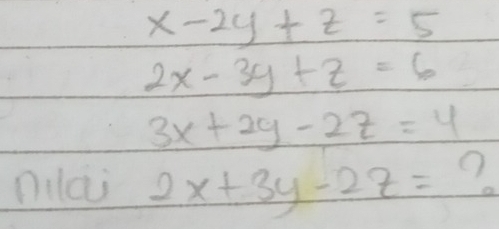 x - 2y + z = 5
2x - 3y + z = 6
3x + 2y - 2z = 4
nilai 2x + 3y - 2z = ?